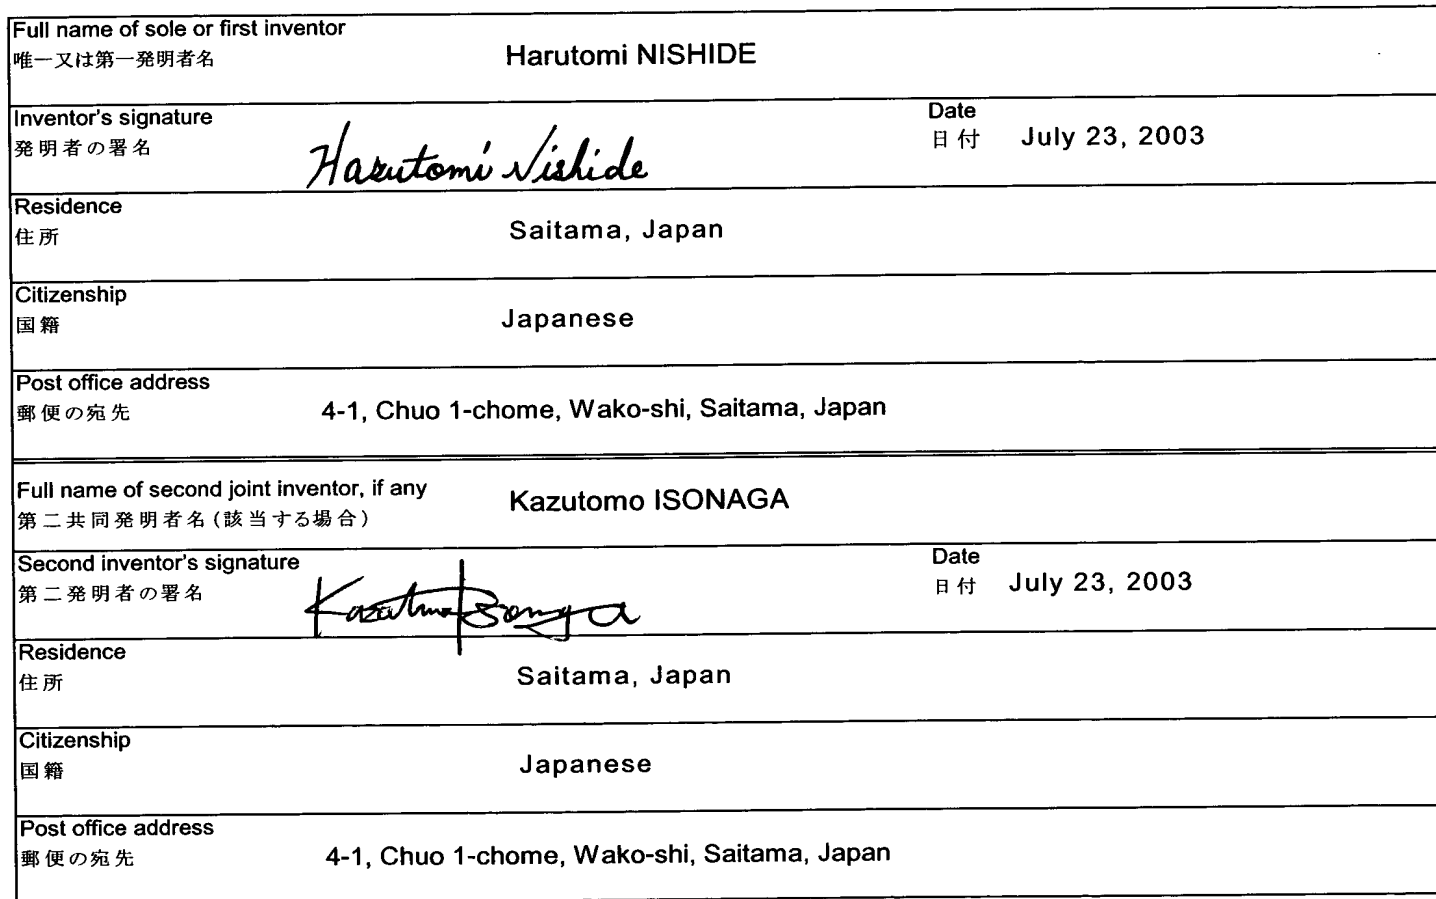 Full name of sole or first inventor
唯一又は第一発明者名 Harutomi NISHIDE
Inventor's signature
発明者の署名 Harutomi Nishide
Date
日付 July 23, 2003
Residence
住所 Saitama, Japan
Citizenship
国籍 Japanese
Post office address
郵便の宛先 4-1, Chuo 1-chome, Wako-shi, Saitama, Japan
Full name of second joint inventor, if any Kazutomo ISONAGA
第二共同発明者名(該当する場合)
Second inventor's signature
第二発明者の署名 Kazutomo Isonaga
Date
日付 July 23, 2003
Residence
住所 Saitama, Japan
Citizenship
国籍 Japanese
Post office address
郵便の宛先 4-1, Chuo 1-chome, Wako-shi, Saitama, Japan